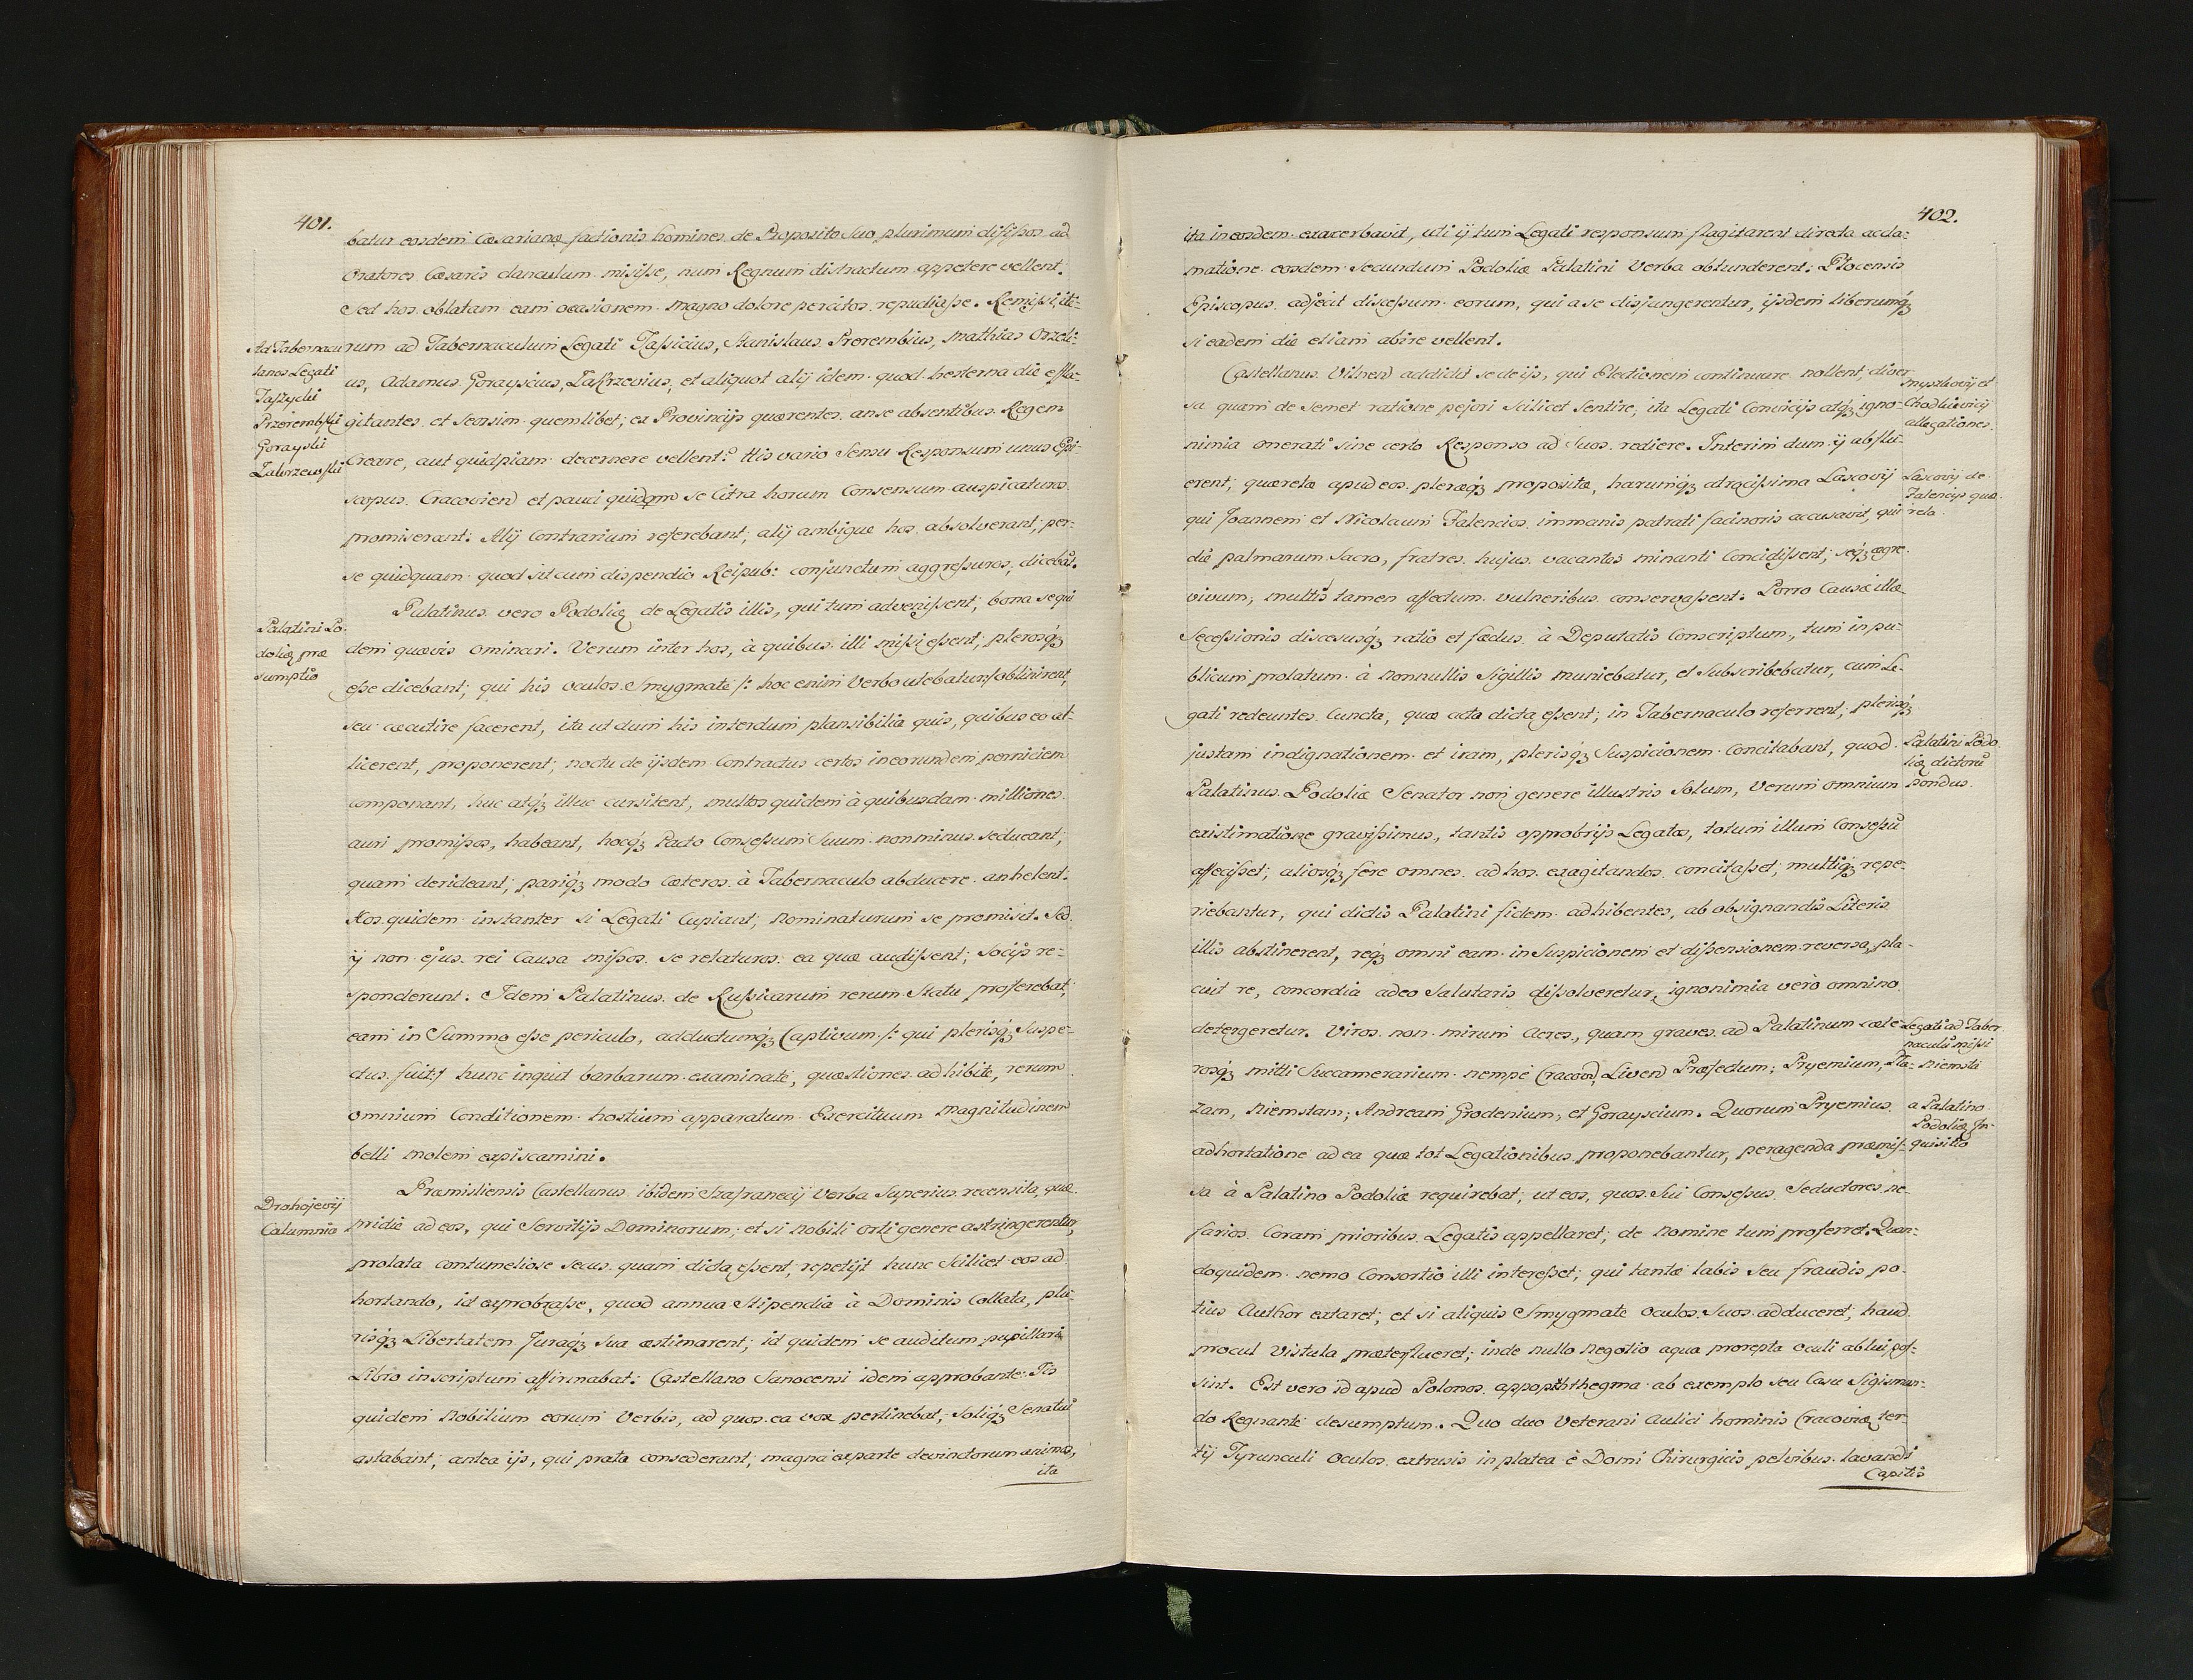 401.
batur eosdem Cæsarianæ factionis homines de Proposito Suo plurimum diffisos ad
Oratores Cæsaris clanculum misisse, num Regnum distractum appetere vellent.
Sed hos oblatam eam occasionem magno dolore percitos repudiasse. Remissi ite-
rum ad Tabernaculum Legati Tassicius, Stanislaus Prerembius, Mathias Orzeli-
us, Adamus Gorayscius, Zakrzevius, et aliquot alij idem quod hesterna die effla-
gitantes et Seorsim quemlibet, ex Provincijs quærentes an se absentibus Regem
Creare, aut quidpiam decernere vellent? His vario Sensu Responsum unus Epi-
scopus Cracovien et pauci quidem se Citra horum Consensum auspicaturos
promiserant: Alij Contrarium referebant, alij ambigue hos absolverant, per-
se quidquam quod sit cum dispendio Reipub: conjunctum aggressuros, dicebāt.
Ad Tabernacu
lanos Legati
Taszycki
Przerembski
Gorayski
Zakrzewski
Palatinus vero Podoliæ de Legatis illis, qui tum advenissent, bona se qui
dem quævis Ominari. Verum inter hos, à quibus illi missi essent, plerosq́
esse dicebant, qui his oculos Smygmate /: hoc enim Verbo utebatur :/ oblinirent,
seu cæcutire facerent, ita ut dum his interdum plausibilia quis, quibus eo al-
licerent, proponerent, noctu de ijsdem Contractus certos in eorundem perniciem
componant, huc atq́ illuc cursitent, multos quidem à quibusdam milliones
auri promissos, habeant, hocq́ Pacto Consessum Suum non minus seducant,
quam derideant, pariq́ modo Cæteros à Tabernaculo abducere anhelent.
Hos quidem instanter si Legati Cupiant, Nominaturum se promisit. Sed
ij non ejus rei Causa missos se relaturos ea quæ audissent, Socijs re-
sponderunt. Idem Palatinus de Russicarum rerum Statu proferebat,
eam in Summo esse periculo, adductumq́ Captivum /: qui plerisq́ Suspe-
ctus fuit :/ hunc inquit barbarum examinate, quæstiones adhibite, rerum
omnium Conditionem hostium apparatum Exercituum magnitudinem
belli molem expiscamini.
Palatini Po-
doliæ præ
sumptio
Præmisliensis Castellanus ibidem Szafranecij Verba Superius recensita, quæ
pridie ad eos, qui Servitijs Dominorum, et si Nobili orti genere astringerentur,
prolata contumeliose secus quam dicta essent, repetijt hunc Scilicet eos ad
hortando, id exprobrasse, quod annua Stipendia à Dominis Collata, plu-
risq́ Libertatem Juraq́ Sua æstimarent; id quidem se auditum pupillari
Libro inscriptum affirmabat: Castellano Sanocensi idem approbante. Iis
quidem Nobilium eorum Verbis, ad quos ea vox pertinebat, Soliq́ Senatui
astabant; antea ijs, qui prata consederant; magna ex parte devinctorum animos,
ita
Drohojevij
Calumnia
402.
ita in eosdem exacerbavit, uti ij tum Legati responsum flagitarent directa accla-
matione eosdem Secundum Podoliæ Palatini Verba obtunderent: Plocensis
Episcopus adjecit discessum eorum, qui a se disjungerentur, ijsdem liberumq́
si eadem die etiam abire vellent.
Castellanus Vilnen addidit se de ijs, qui Electionem continuare nollent, diver
sa quam de semet ratione pejori Scilicet Sentire, ita Legati Convicijs atq́ igno-
minia onerati sine certo Responso ad Suos rediere. Interim dum ij abfu-
erent, querelæ apud eos pleræq́ propositæ, harumq́ atrocissima Lascovij
qui Joannem et Nicolaum Zalencios immanis patrati facinoris accusavit, qui
die palmarum Sacro, fratres hujus vacantes minanti Concidissent, seq́ ægre
vivum, multis tamen affectum vulneribus conservassent: Porro Causæ illæ
Secessionis discessusq́ ratio et fædus à Deputatis Conscriptum, tum in pu-
blicum prolatum à Nonnullis Sigillis muniebatur, et Subscribebatur, cum Le-
gati redeuntes Cuncta, quæ acta dicta essent, in Tabernaculo referrent, plerisq́
justam indignationem et iram, plerisq́ Suspicionem Concitabant, quod
Palatinus Podoliæ Senator non genere illustris Solum, Verum omnium
existimatione gravissimus, tantis opprobrijs Legatos, totum illum Consessū
affecisset, aliosq́ fere omnes ad hos exagitandos concitasset; multiq́ repe-
riebantur, qui dictis Palatini fidem adhibentes, ab obsignandis Literis
illis abstinerent, req́ omni eam in Suspicionem et dissensionem reversa, pla-
cuit re, concordia adeo Salutaris dissolveretur, ignonimia verò omnino
detergeretur. Viros non mirum Acres, quam graves ad Palatinum cæte-
rosq́ mitti Succamerarium nempe Cracov, Liven Præfectum; Pryemium, Pla-
zam, Niemstam; Andream Grodenium, et Gorayscium. Quorum Pryemius
adhortatione ad ea quæ tot Legationibus proponebantur, peragenda præmis-
sa à Palatino Podoliæ requirebat, ut eos, quos Sui Consessus Seductores ne-
farios Coram prioribus Legatis appellaret, de Nomine tum proferret. Quan-
doquidem nemo Consortio illi interesset, qui tantæ labis Seu fraudis po-
tius Author extaret, et si aliquis Smygmate oculos Suos adduceret, haud
procul Vistula præterflueret, inde nullo Negotio aqua prorepta oculi ablui pos-
sint. Est vero id apud Polonos appophthegma ab exemplo seu Casu Sigismun-
do Regnante desumptum. Quo duo Veterani Aulici hominis Cracoviæ ter-
tij Tyrunculi Oculos extrusis in platea è Domi Chirurgicis pelvibus lavandi
Capitis
Myszkovij et
Chodkievicij
allegationes
Lascovij de
Zalencijs que
rela
Palatini Podo
liæ dictorū
pondus
Legati ad Taber
naculū missi
Niemsta
a Palatino
Podoliæ In-
quisitio